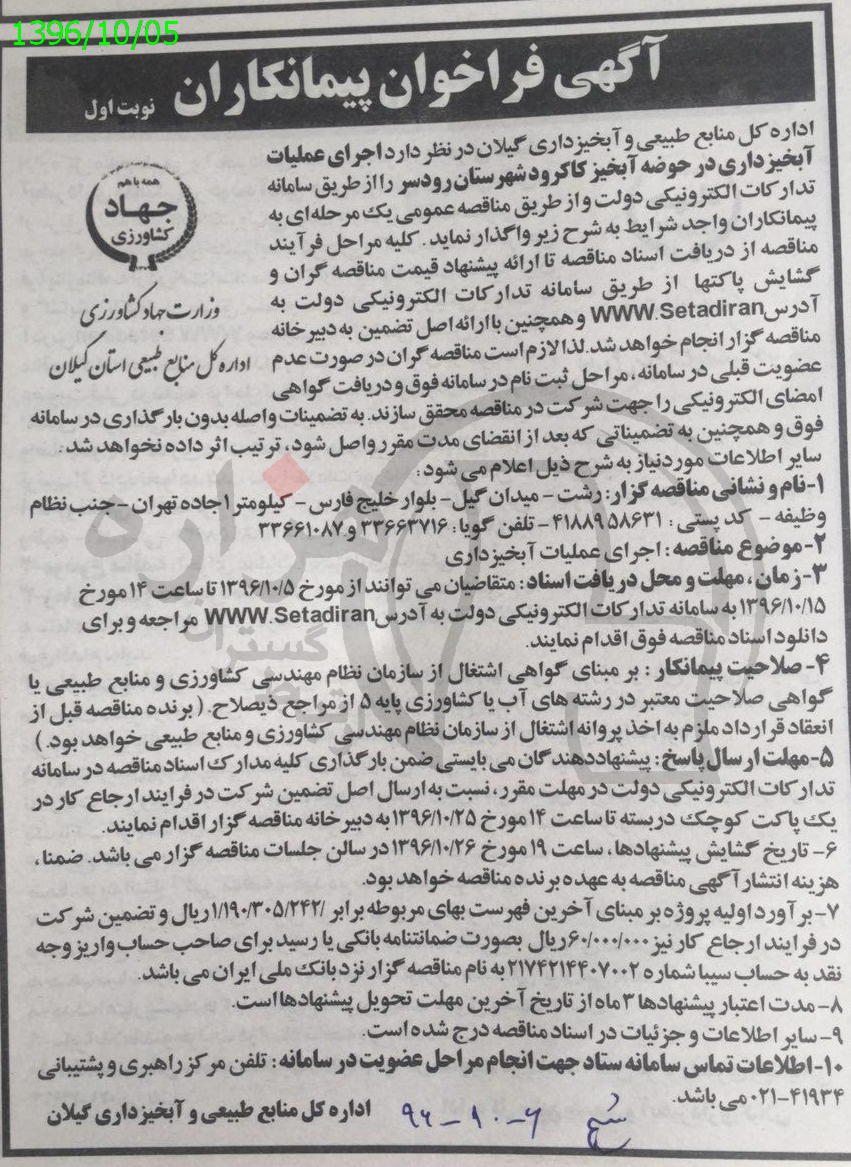 1396/10/05
آگهی فراخوان پیمانکاران نوبت اول
اداره کل منابع طبیعی و آبخیزداری گیلان در نظر دارد اجرای عملیات
آبخیزداری در حوضه آبخیز کاکرود شهرستان رودسر را از طریق سامانه
تدارکات الکترونیکی دولت و از طریق مناقصه عمومی یک مرحله ای به
پیمانکاران واجد شرایط به شرح زیر واگذار نماید. کلیه مراحل فرآیند
مناقصه از دریافت اسناد مناقصه تا ارائه پیشنهاد قیمت مناقصه گران و
گشایش پاکتها از طریق سامانه تدارکات الکترونیکی دولت به
آدرس WWW.Setadiran و همچنین با ارائه اصل تضمین به دبیرخانه
مناقصه گزار انجام خواهد شد. لذا لازم است مناقصه گران در صورت عدم
عضویت قبلی در سامانه، مراحل ثبت نام در سامانه فوق و دریافت گواهی
امضای الکترونیکی را جهت شرکت در مناقصه محقق سازند. به تضمینات واصله بدون بارگذاری در سامانه
فوق و همچنین به تضمیناتی که بعد از انقضای مدت مقرر واصل شود، ترتیب اثر داده نخواهد شد.
سایر اطلاعات موردنیاز به شرح ذیل اعلام می شود:
همه با هم
جهاد
کشاورزی
وزارت جهاد کشاورزی
اداره کل منابع طبیعی استان گیلان
۱- نام و نشانی مناقصه گزار: رشت – میدان گیل – بلوار خلیج فارس – کیلومتر ۱ جاده تهران – جنب نظام
وظیفه – کد پستی: ۴۱۸۸۹۵۸۶۳۱ – تلفن گویا: ۳۳۶۶۳۷۱۶ و ۳۳۶۶۱۰۸۷
۲- موضوع مناقصه: اجرای عملیات آبخیزداری
۳- زمان، مهلت و محل دریافت اسناد: متقاضیان می توانند از مورخ ۱۳۹۶/۱۰/۵ تا ساعت ۱۴ مورخ
۱۳۹۶/۱۰/۱۵ به سامانه تدارکات الکترونیکی دولت به آدرس WWW.Setadiran مراجعه و برای
دانلود اسناد مناقصه فوق اقدام نمایند.
۴- صلاحیت پیمانکار: بر مبنای گواهی اشتغال از سازمان نظام مهندسی کشاورزی و منابع طبیعی یا
گواهی صلاحیت معتبر در رشته های آب یا کشاورزی پایه ۵ از مراجع ذیصلاح. (برنده مناقصه قبل از
انعقاد قرارداد ملزم به اخذ پروانه اشتغال از سازمان نظام مهندسی کشاورزی و منابع طبیعی خواهد بود.)
۵- مهلت ارسال پاسخ: پیشنهاددهندگان می بایستی ضمن بارگذاری کلیه مدارک اسناد مناقصه در سامانه
تدارکات الکترونیکی دولت در مهلت مقرر، نسبت به ارسال اصل تضمین شرکت در فرایند ارجاع کار در
یک پاکت کوچک دربسته تا ساعت ۱۴ مورخ ۱۳۹۶/۱۰/۲۵ به دبیرخانه مناقصه گزار اقدام نمایند.
۶- تاریخ گشایش پیشنهادها، ساعت ۱۹ مورخ ۱۳۹۶/۱۰/۲۶ در سالن جلسات مناقصه گزار می باشد. ضمنا،
هزینه انتشار آگهی مناقصه به عهده برنده مناقصه خواهد بود.
۷- برآورد اولیه پروژه بر مبنای آخرین فهرست بهای مربوطه برابر ۱/۱۹۰/۳۰۵/۲۴۲/ ریال و تضمین شرکت
در فرایند ارجاع کار نیز ۶۰/۰۰۰/۰۰۰ ریال بصورت ضمانتنامه بانکی یا رسید برای صاحب حساب واریز وجه
نقد به حساب سیبا شماره ۲۱۷۴۲۱۴۴۰۷۰۰۲ به نام مناقصه گزار نزد بانک ملی ایران می باشد.
۸- مدت اعتبار پیشنهادها ۳ ماه از تاریخ آخرین مهلت تحویل پیشنهادها است.
۹- سایر اطلاعات و جزئیات در اسناد مناقصه درج شده است.
۱۰- اطلاعات تماس سامانه ستاد جهت انجام مراحل عضویت در سامانه: تلفن مرکز راهبری و پشتیبانی
۰۲۱-۴۱۹۳۴ می باشد.
اداره کل منابع طبیعی و آبخیزداری گیلان
هزاره
گستران